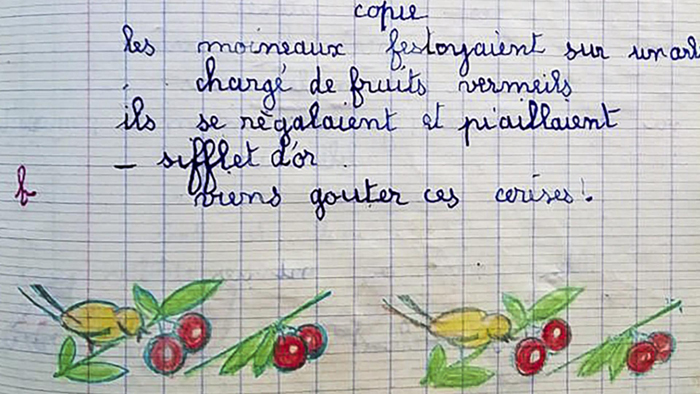 copie
les moineaux festoyaient sur un
chargé de fruits vermeils
ils se régalaient et piaillaient
– sifflet d'or.
viens gouter ces cerises!